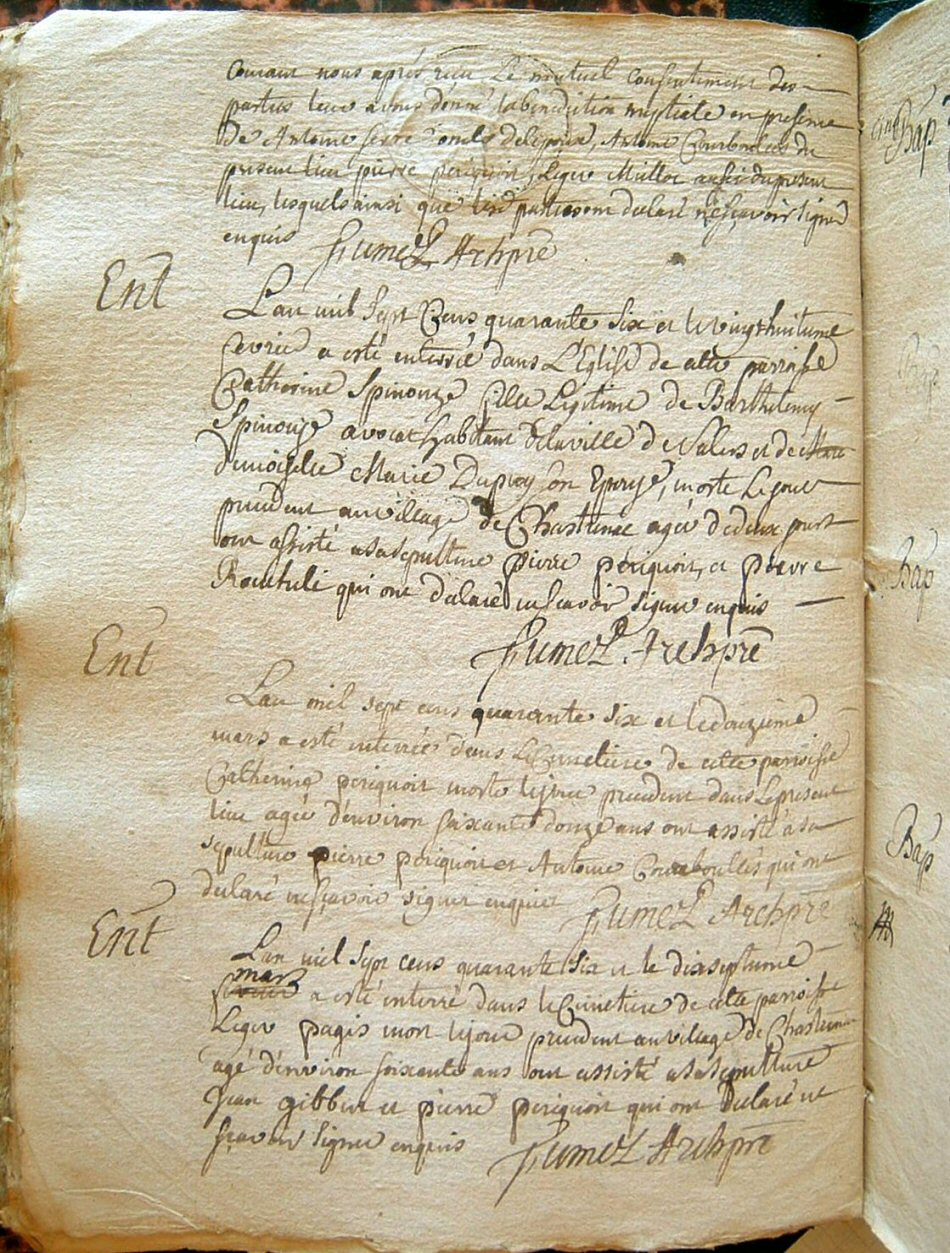 courant nous après reçu le mutuel consentement des
parties leur avons donné la benediction nuptiale en presence
de Antoine serre oncle de lepoux, Antoine Courboulès du
present lieu pierre periquoir, Leger Mulloc aussi du present
lieu, lesquels ainsi que les parties ont declaré ne sçavoir signer
enquis fumel Archprē
Ent
L'an mil sept Cens quarante six et le vingt huitieme
fevrier a esté enterrée dans L'Eglise de cette parroisse
Catherine Spinouze fille Legitime de Barthelemy
Spinouze avocat habitant de la ville de Valers et de Mare
demoiselle Marie Dupuy son Epouse, morte Le jour
precedent au village de Chastenac agée de deux jours
ont assisté a sa sepulture pierre periquoir, et pierre
qui ont declaré ne scavoir signer enquis
fumel Archprē
Ent
L'an mil sept cens quarante six et le douzieme
mars a esté enterrée dans Le Cimetiere de cette parroisse
Catherine periquoir morte le jour precedent dans Le present
lieu agée d'environ soixante douze ans ont assisté a sa
sepulture pierre periquoir et Antoine Courboullès qui ont
declaré ne sçavoir signer enquis fumel Archprē
Ent
L'an mil sept cens quarante six et le dixseptieme
mars
fevrier a esté enterré dans le Cimetiere de cette parroisse
Leger pagis mort le jour precedent au village de Chastenac
agé d'environ soixante ans ont assisté a sa sepulture
Jean gibbert et pierre periquoir qui ont declaré ne
sçavoir signer enquis fumel Archprē
Bap
Bap
Bap
Bap